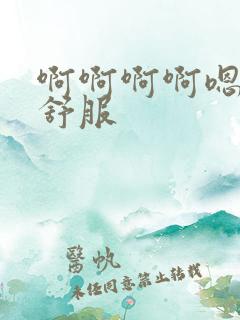 啊啊啊啊嗯
舒服
醫帆
未经同意禁止转载